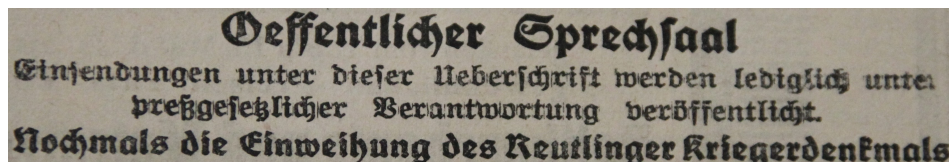 Oeffentlicher Sprechsaal
Einsendungen unter dieser Ueberschrift werden lediglich unter
preßgesetzlicher Verantwortung veröffentlicht.
Nochmals die Einweihung des Reutlinger Kriegerdenkmals